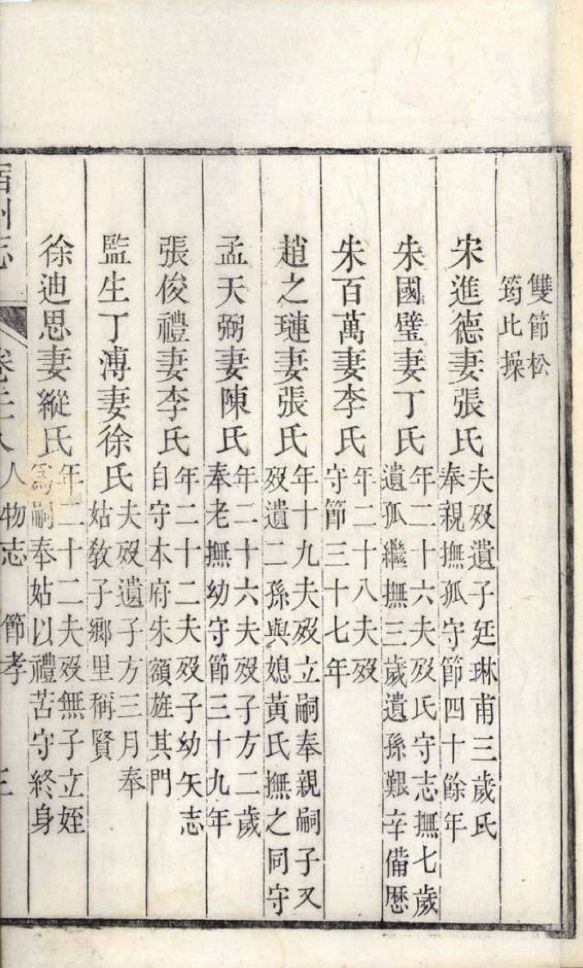 雙節松
筠比操
宋進德妻張氏
夫歿遺子廷琳甫三歲氏
奉親撫孤守節四十餘年
朱國璧妻丁氏
年二十六夫歿氏守志撫七歲
遺孤繼撫三歲遺孫艱辛備歷
朱百萬妻李氏
年二十八夫歿
守節三十七年
趙之璉妻張氏
年十九夫歿立嗣奉親嗣子又
歿遺二孫與媳黃氏撫之同守
孟天弼妻陳氏
年二十六夫歿子方二歲
奉老撫幼守節三十九年
張俊禮妻李氏
年二十二夫歿子幼矢志
自守本府朱額旌其門
監生丁溥妻徐氏
夫歿遺子方三月奉
姑敎子鄉里稱賢
徐迪思妻縱氏
年二十二夫歿無子立姪
為嗣奉姑以禮苦守終身
州志 人物志 節孝